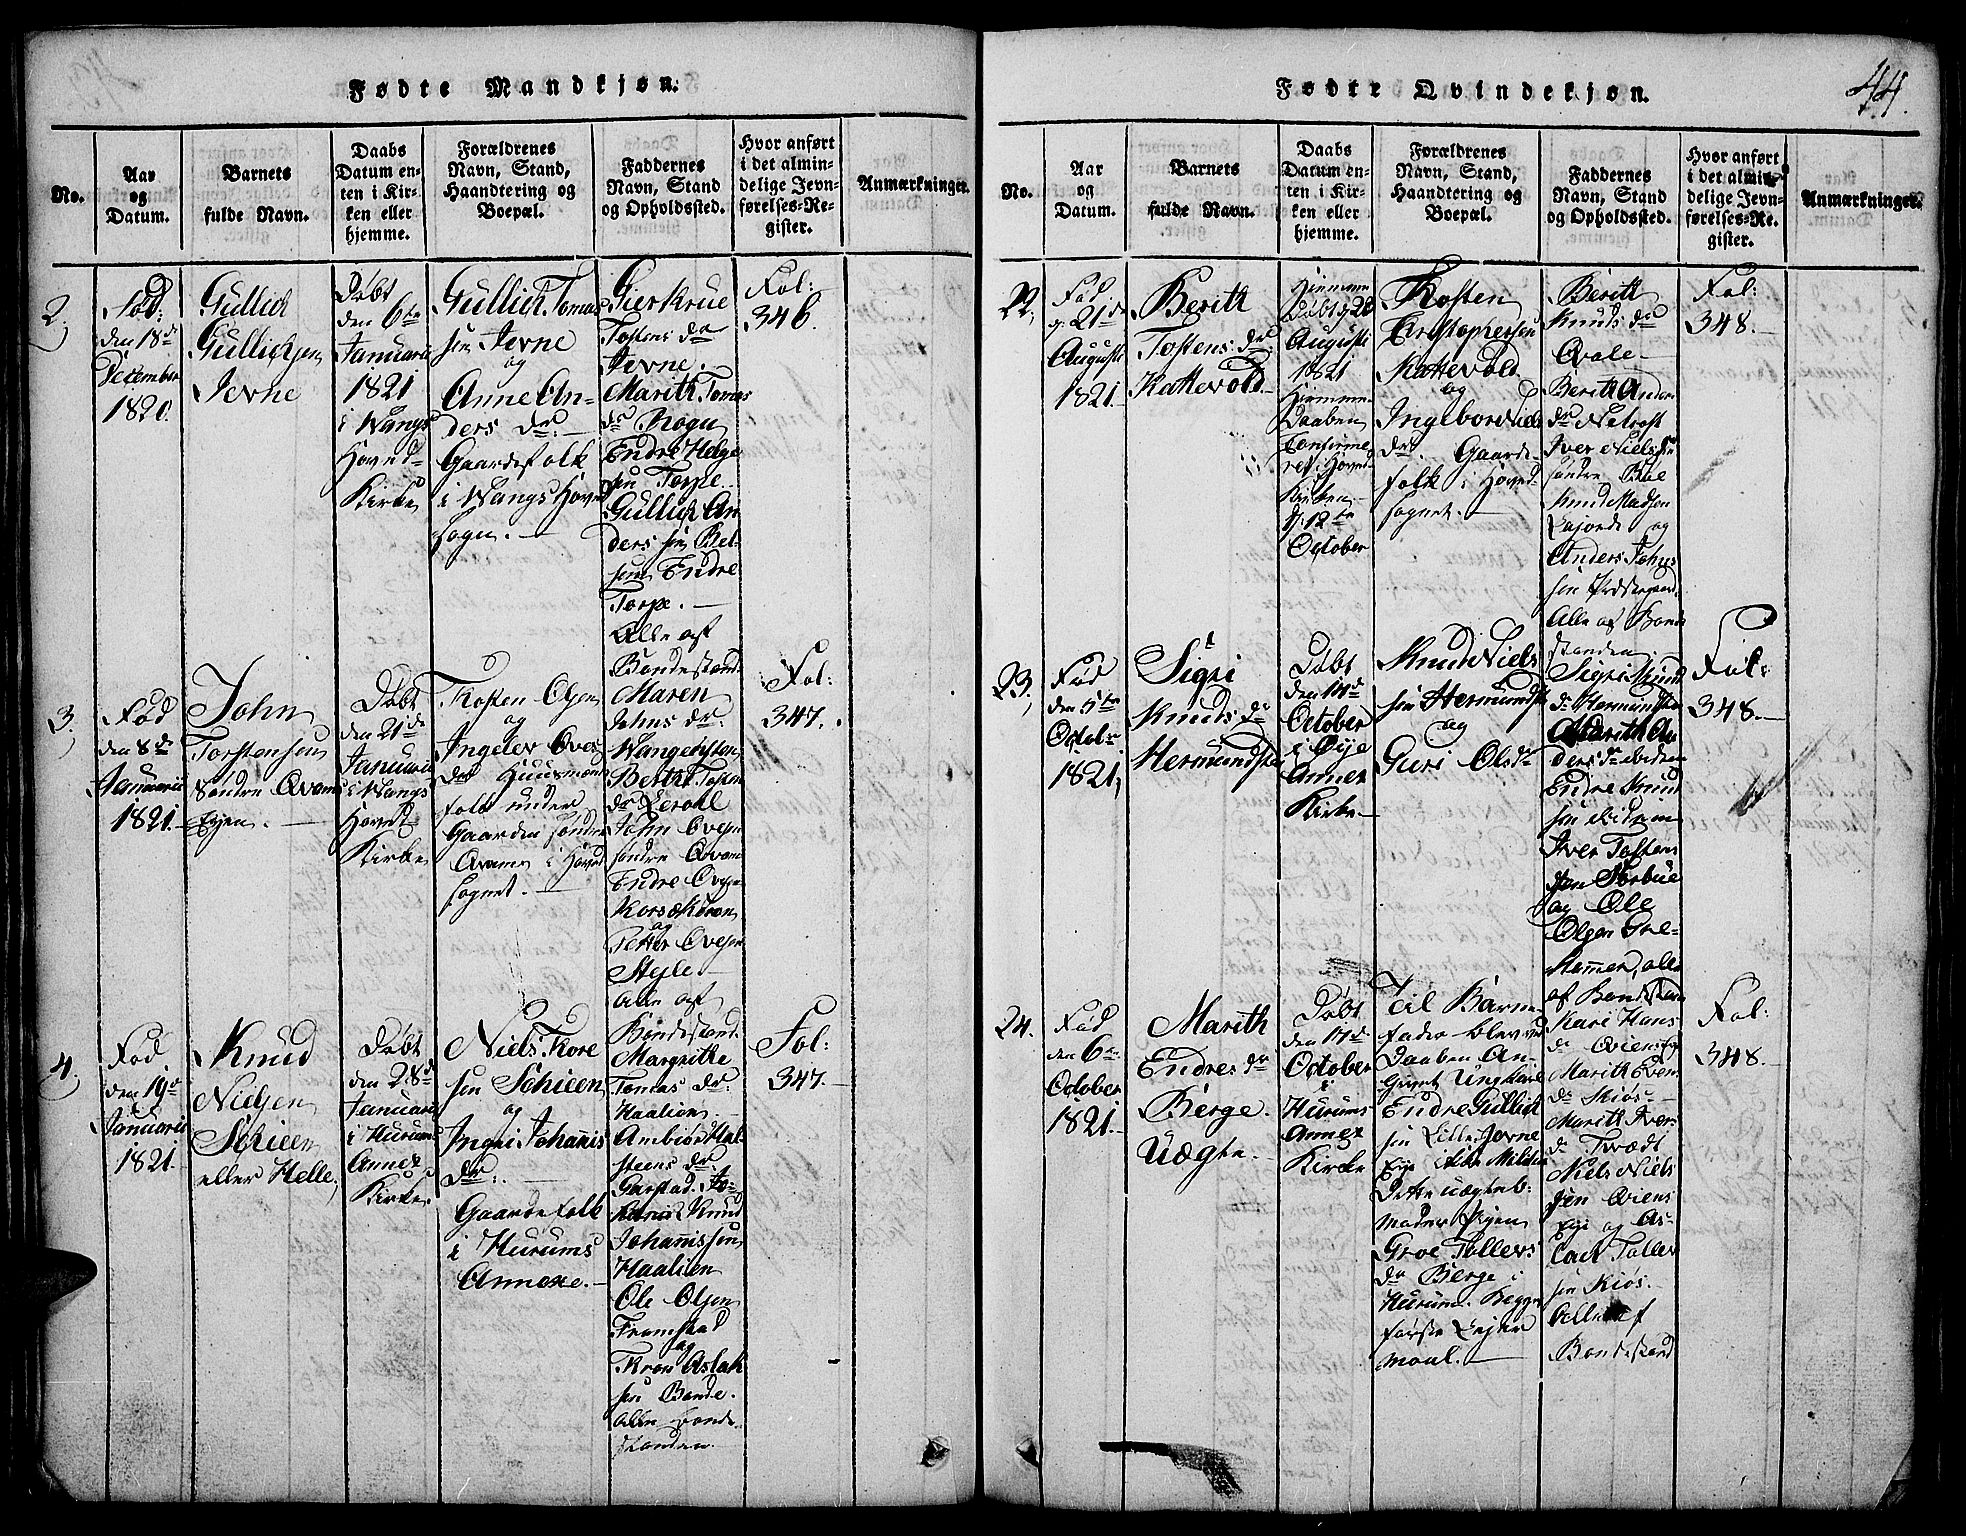 Fødte Mandkjøn.
No.
Aar
og
Datum.
Barnets
fulde Navn.
Daabs
Datum en-
ten i Kir-
ken eller
hjemme.
Forældrenes
Navn, Stand,
Haandtering og
Boepæl.
Faddernes
Navn, Stand
og Opholdssted.
Hvor anført
i det almin-
delige Jevn-
førelses-Re-
gister.
Anmærkninger.
2.
Fød:
den 18de
December
1820.
Gullich
Gullichsen
Jevne
Døbt
den 6te
Januarii
1821
i Wangs
Hoved-
Kirke
Gullich Tomas
sen Jevne
og
Anne An-
ders dr.
Gaardefolk
i Wangs Hoved
sogn.
Gierkrue
Tostens dr
Jevne.
Marith Tomas
dr Rogn
Endre Helge
sen Torpe
Gullich An
ders sen Bel-
sem Endre
Torpe.
Alle af
Bondestand.
Fol:
346.
3.
Fød
den 8de
Januarii
1821.
John
Torstensen
søndre Qvams
Eyen.
Døbt
den 21de
Januarii
i Wangs
Hoved-
Kirke
Tosten Olsen
og
Ingeler Oves
dr Huusmann
folk under
Gaarden søndre
Qvams i Hoved
sognet.
Maren
Johns dr.
Berthe Tosten
dr Lerohl
John Ovesen
søndre Qvam
Endre Ovesen
og
Petter Ovesen
Steile
Alle af
Bondestand.
Fol:
347.
4.
Fød
den 19de
Januarii
1821.
Knud
Nielsen
Schieen
eller Helle,
Døbt
den 28de
Januarii
i Hurums
Annex
Kirke.
Niels Tore
sen Schieen
og
Ingri Johannis
dr.
Gaardefolk
i Hurums
Annexe.
Margrithe
Tomas dr.
Haalien
Ambiør Hal-
steens dr.
Garstad.
Knud
Johannissen
Haalien
Ole Olsen
Framstad
og
Thron Aslak
sen Bonde.
Alle Bonde
standen.
Fol:
347.
Fødte Qvindekjøn.
44.
No.
Aar
og
Datum.
Barnets
fulde Navn.
Daabs
Datum en-
ten i Kir-
ken eller
hjemme.
Forældrenes
Navn, Stand,
Haandtering og
Boepæl.
Faddernes
Navn, Stand
og Opholdssted.
Hvor anført
i det almin-
delige Jevn-
førelses-Re-
gister.
Anmærkninger.
22.
Fød
d. 21de
Augusti
1821.
Berith
Tostens dr
Kattevold
Hiemme
Døbt d. 28
Augusti
1821
Hiemme-
Daaben
Confirme
ret i Hoved
Kirken
d. 12te
October
Tosten
Christophersen
Kattevold
og
Ingebor Niels
dr. Gaarde-
folk i Hoved-
sognet.
Berith
Knuds dr
Qvale
Berith Anders
dr
Iver Nielssen
søndre Bøe
Knud Madsen
og
Anders Johns
sen
Alle af Bonde
standen.
Fol:
348.
23.
Fød
den 5te
Octobr
1821,
Sigri
Knuds dr
Hermundstad
Døbt
den 14de
October
i Øye
Annex
Kirke
Knud Niels
sen Hermundsta
og
Guri Olsdr
Sigri Knud
dr Hermundsta
Marith An
ders dr
Endre Knud
sen
Iver Tostens
sen Storbue
og Ole
Olsen Gre-
Stammen, alle
af Bondestand
Fol:
348.
24.
Fød
den 6te
October
1821.
Marith
Endres dr
Berge.
Uægte.
Døbt
den 14de
October
i
Hurums
Annex
Kirke
Til Barne
fader blev ved
Daaben An-
givet Ungkarl
Endre Gullich
sen Lille Jevne
Eye
Dette uægte b:
moder Pigen
Groe Tollevs
dr Berge i
Hurum. Begge
første Leyer
maal.
Kari Hans
dr Qviens eye
Marith Even
dr Kiøs
Marith Ivers
dr Tvædt
Niels Niels
sen Qviens
Eye og As-
lack Tollev
sen Kiøs.
Alle af
Bondestand
Fol:
348.